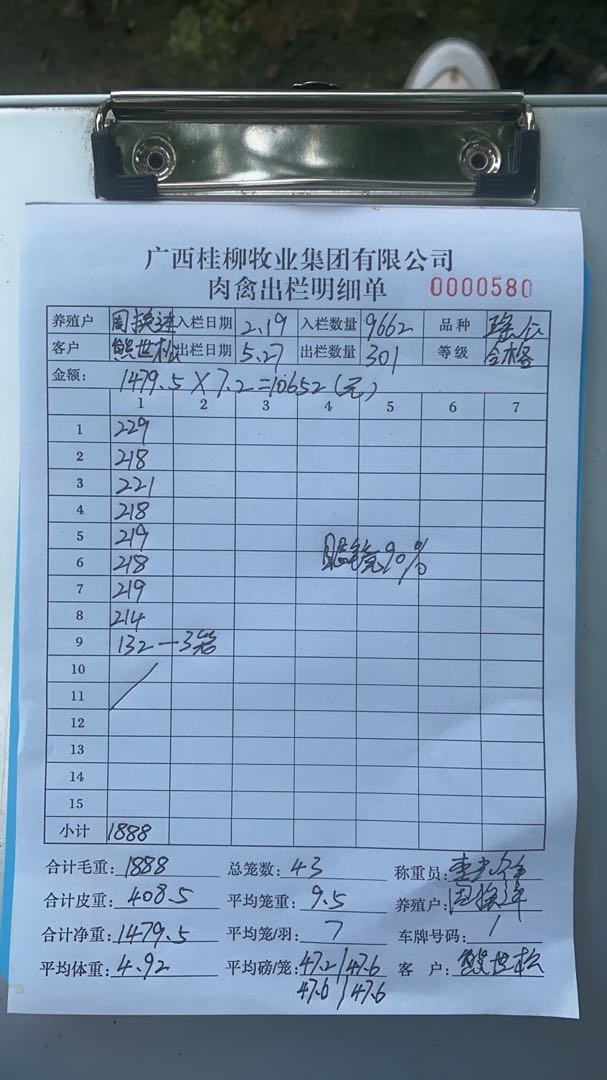 广西桂柳牧业集团有限公司
肉禽出栏明细单 0000580
养殖户 周换连 入栏日期 2.19 入栏数量 9662 品种
客户 熊世松 出栏日期 5.27 出栏数量 301 等级 合格
金额: 1479.5×7.2=10652(元)
1 2 3 4 5 6 7
1 229
2 218
3 221
4 218
5 219
6 218 90%
7 219
8 214
9 132-3笼
10
11
12
13
14
15
小计 1888
合计毛重: 1888 总笼数: 43 称重员:
合计皮重: 408.5 平均笼重: 9.5 养殖户: 周换连
合计净重: 1479.5 平均笼/羽: 7 车牌号码: /
平均体重: 4.92 平均磅/笼: 47.2/47.6 客户: 熊世松
47.6/47.6